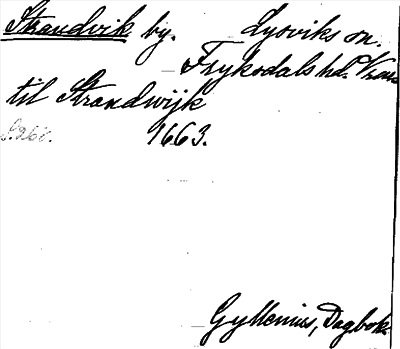 Strandvik by. Lysviks sn.
Fryksdals hd. Vrml
til Strandwijk
S. 261. 1663.
Gyllenius, Dagbok.